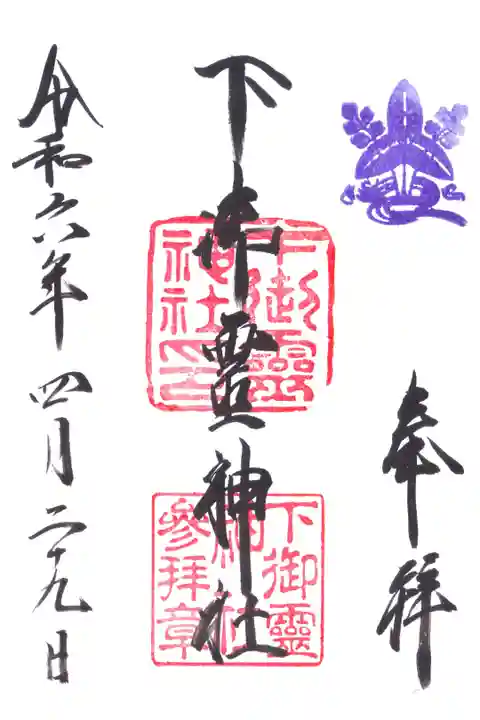 奉拝
下御霊神社
下御靈神社印
下御靈神社參拜章
令和六年四月二十九日